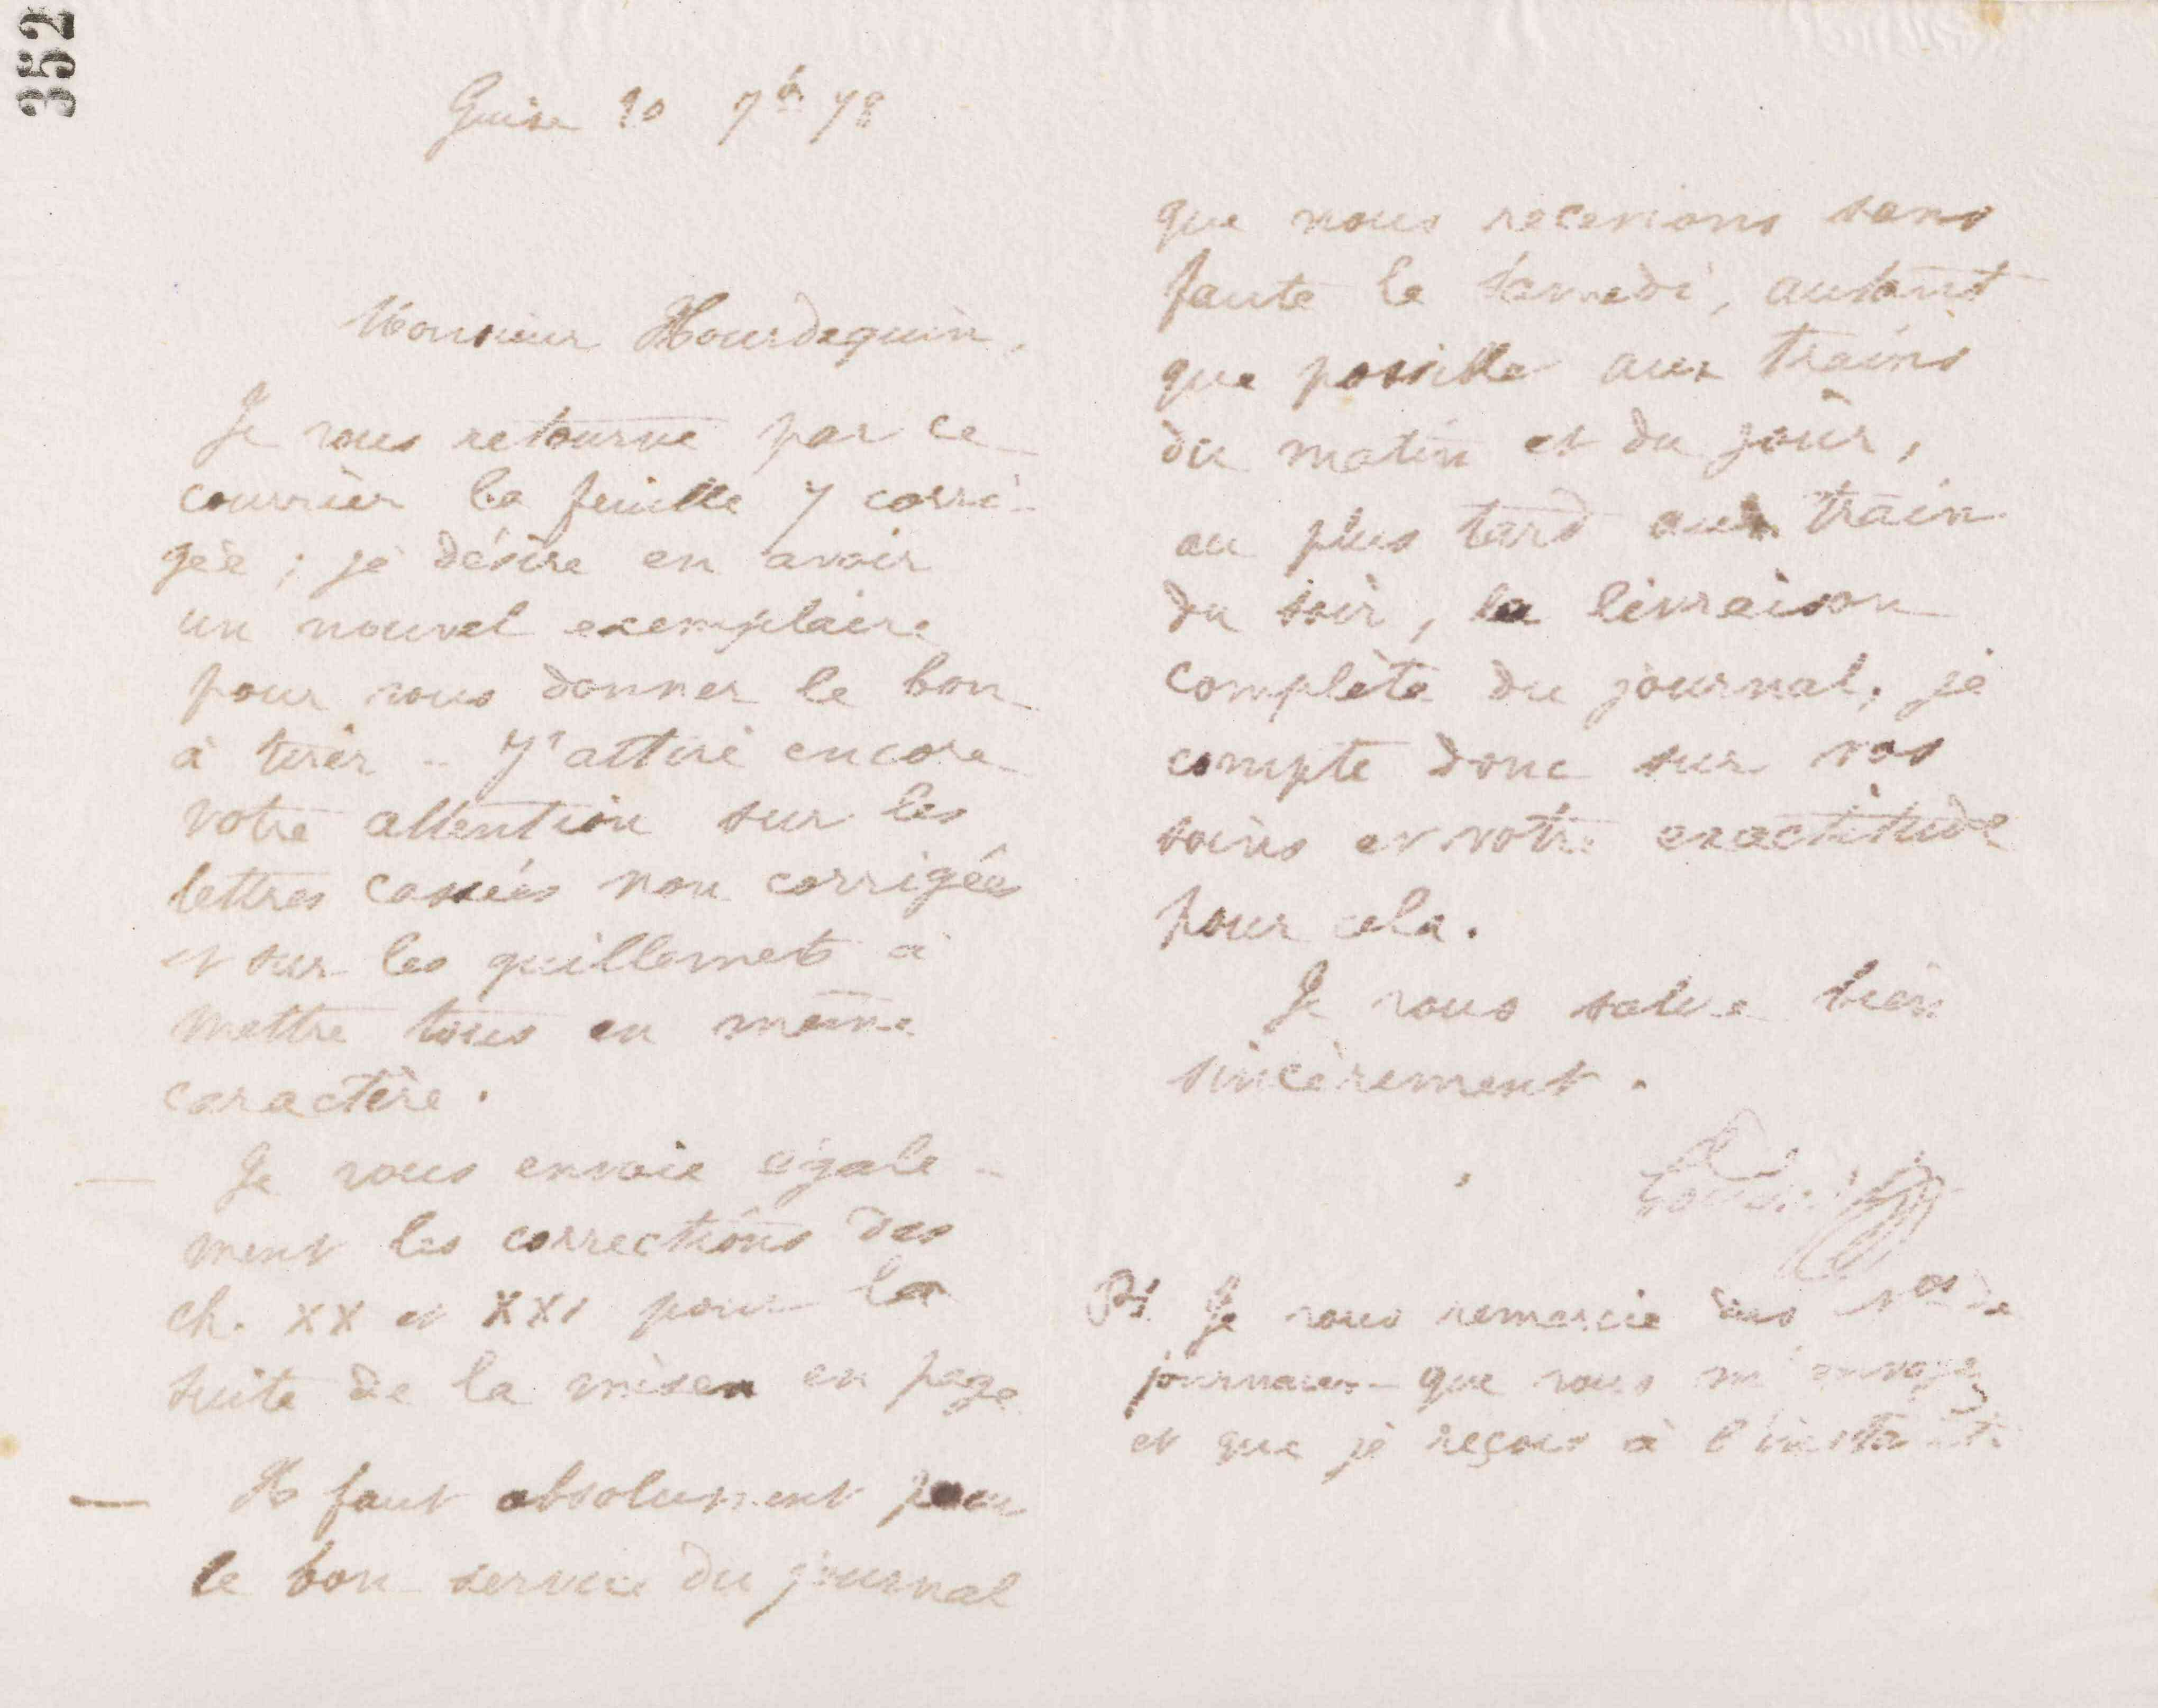 352
Guise 10 7bre 78
Monsieur Hourdequin,
Je vous retourne par ce
courrier la feuille 7 corri-
gée ; je désire en avoir
un nouvel exemplaire
pour vous donner le bon
à tirer - J'attire encore
votre attention sur les
lettres cassées non corrigées
et sur les guillemets à
mettre tous en même
caractère.
— Je vous envoie égale-
ment les corrections des
ch. XX et XXI pour la
suite de la mise en page
— Il faut absolument pour
le bon service du journal
que nous recevions sans
faute le samedi, autant
que possible aux trains
du matin et du jour,
au plus tard au train
du soir, la livraison
complète du journal, je
compte donc sur vos
soins et votre exactitude
pour cela.
Je vous salue bien
sincèrement.
Godin
PS. Je vous remercie des Nos de
journaux que vous m'envoyez
et que je reçois à l'instant.